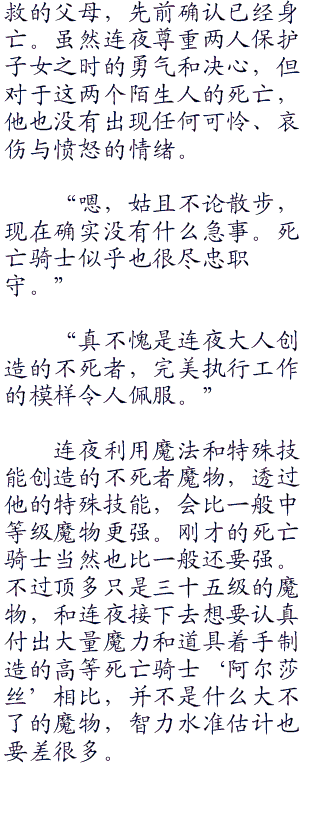 救的父母，先前确认已经身
亡。虽然连夜尊重两人保护
子女之时的勇气和决心，但
对于这两个陌生人的死亡，
他也没有出现任何可怜、哀
伤与愤怒的情绪。
“嗯，姑且不论散步，
现在确实没有什么急事。死
亡骑士似乎也很尽忠职
守。”
“真不愧是连夜大人创
造的不死者，完美执行工作
的模样令人佩服。”
连夜利用魔法和特殊技
能创造的不死者魔物，透过
他的特殊技能，会比一般中
等级魔物更强。刚才的死亡
骑士当然也比一般还要强。
不过顶多只是三十五级的魔
物，和连夜接下去想要认真
付出大量魔力和道具着手制
造的高等死亡骑士‘阿尔莎
丝’相比，并不是什么大不
了的魔物，智力水准估计也
要差很多。